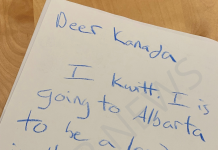 Deer Kanada
I Kwitt. I is
going to Albarta
to be a
NEWS